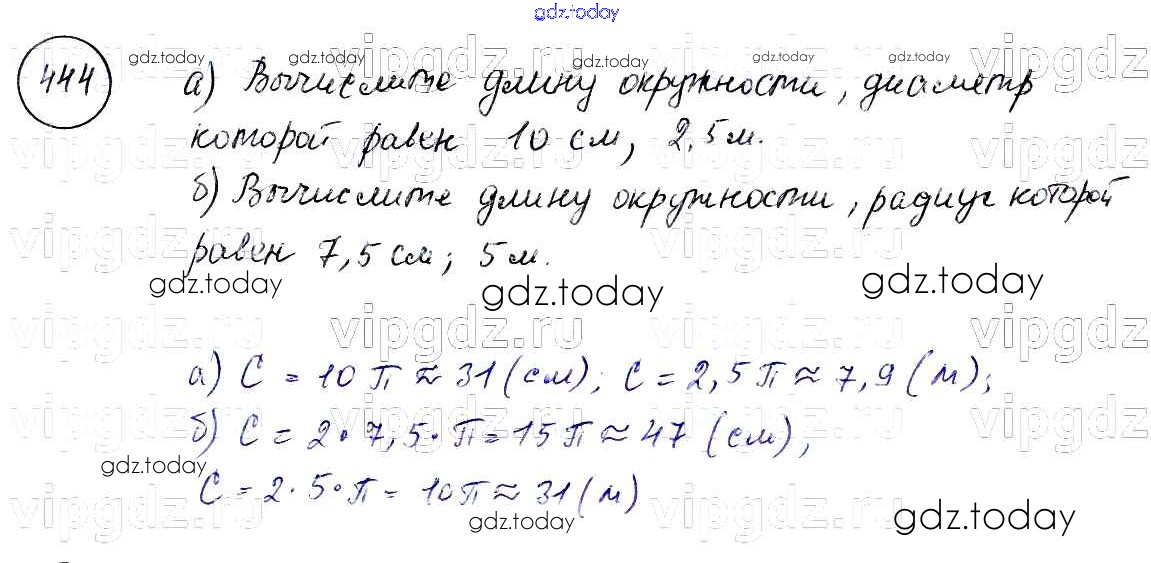 gdz.today
444
а) Вычислите длину окружности, диаметр
которой равен 10 см, 2,5 м.
б) Вычислите длину окружности, радиус которой
равен 7,5 см; 5 м.
а) C = 10 π ≈ 31 (см); C = 2,5 π ≈ 7,9 (м);
б) C = 2 · 7,5 · π = 15 π ≈ 47 (см),
C = 2 · 5 · π = 10 π ≈ 31 (м)
gdz.today gdz.today gdz.today gdz.today gdz.today
vipgdz.ru vipgdz.ru vipgdz.ru vipgdz
gdz.today gdz.today gdz.today
vipgdz.ru vipgdz.ru vipgdz.ru vipgdz
gdz.today
gdz.today gdz.today